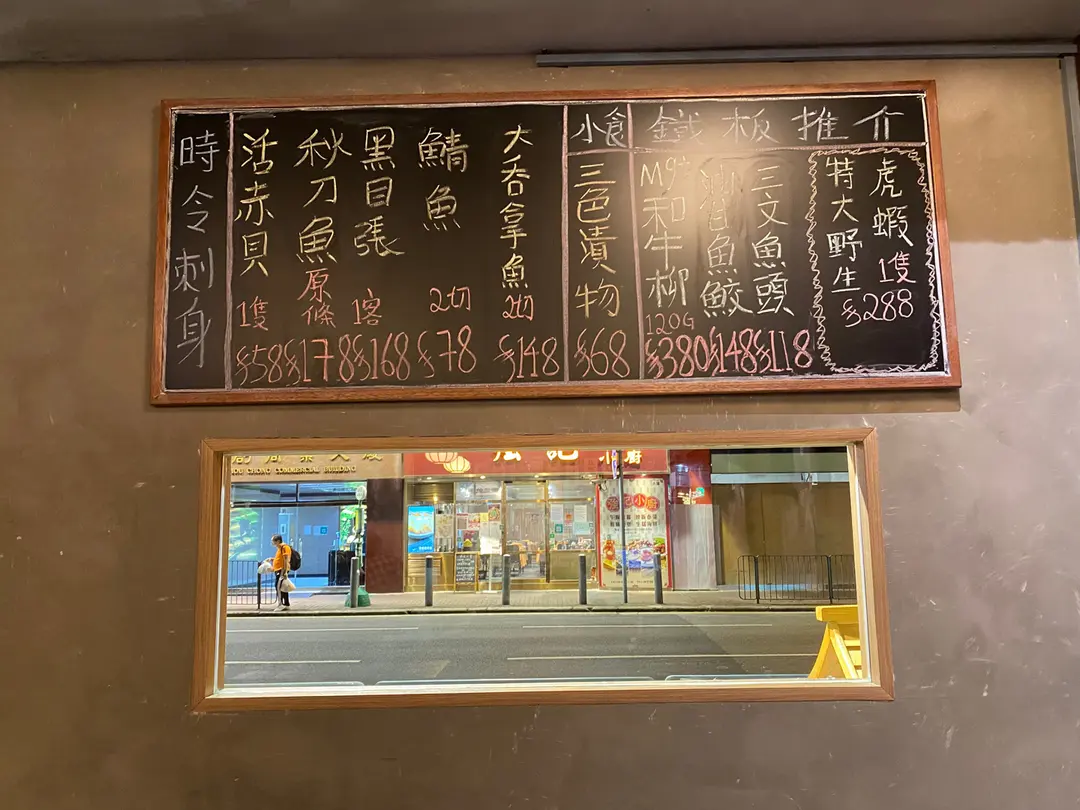 時令刺身
活赤貝 1隻 $58
秋刀魚 原條 $178
黑目張 1客 $168
鯖魚 2切 $78
大吞拿魚 2切 $148
小食
三色漬物 $68
鐵板推介
M9+和牛柳 120G $380
魚鮫 $148
三文魚頭 $118
特大野生
虎蝦 1隻 $288
CHONG COMMERCIAL BUILDING
記小廚
記小廚